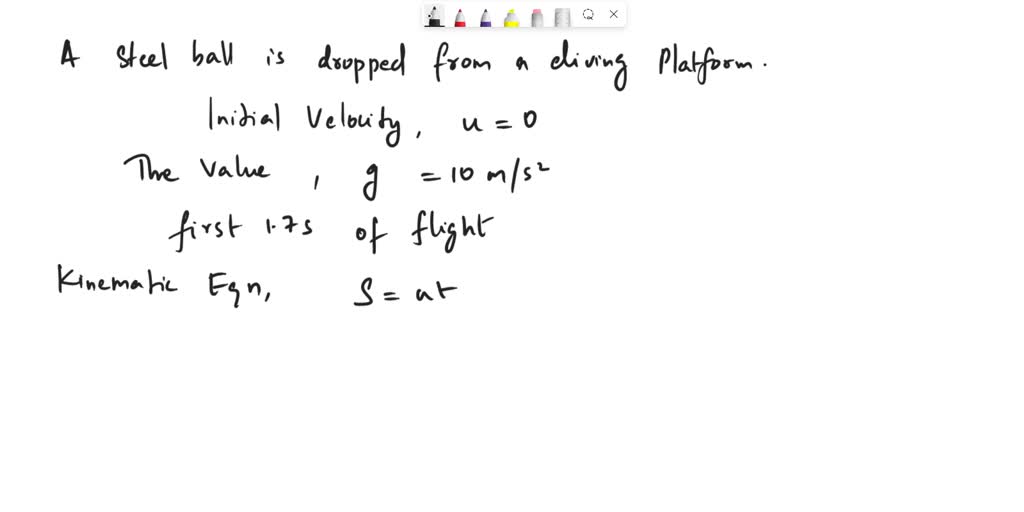 A steel ball is dropped from a diving Platform.
Initial Velocity, u = 0
The Value, g = 10 m/s²
first 1.7s of flight
Kinematic Eqn, S = ut